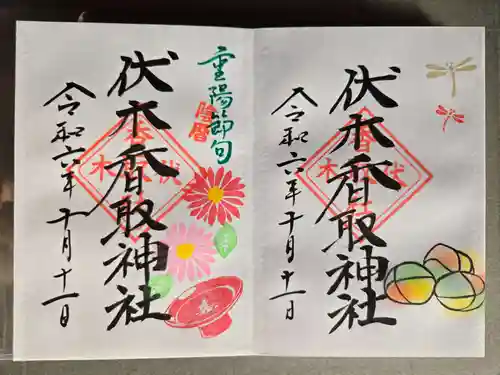 重陽節句
旧暦
伏木香取神社
令和六年十月十一日
伏木香取神社
令和六年十月十一日